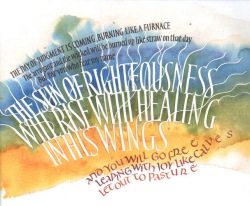 THE DAY OF JUDGMENT IS COMING, BURNING LIKE A FURNACE
the arrogant and the wicked will be burned up like straw on that day
But for you who fear my name
THE SUN OF RIGHTEOUSNESS
WILL RISE WITH HEALING
IN HIS WINGS
AND YOU WILL GO FREE,
LEAPING WITH JOY LIKE CALVES
LET OUT TO PASTURE